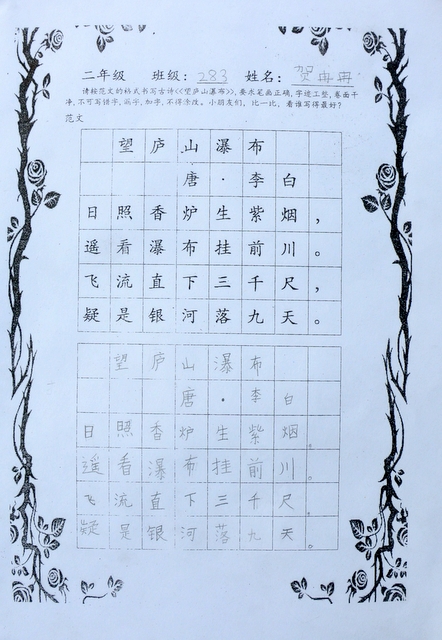 二年级 班级：283 姓名：贺冉冉
请按范文的格式书写古诗<<望庐山瀑布>>，要求笔画正确，字迹工整，卷面干
净，不可写错字，漏字，加字，不得涂改。小朋友们，比一比，看谁写得最好？
范文
望庐山瀑布
唐·李白
日照香炉生紫烟，
遥看瀑布挂前川。
飞流直下三千尺，
疑是银河落九天。
望庐山瀑布
唐·李白
日照香炉生紫烟。
遥看瀑布挂前川。
飞流直下三千尺。
疑是银河落九天。